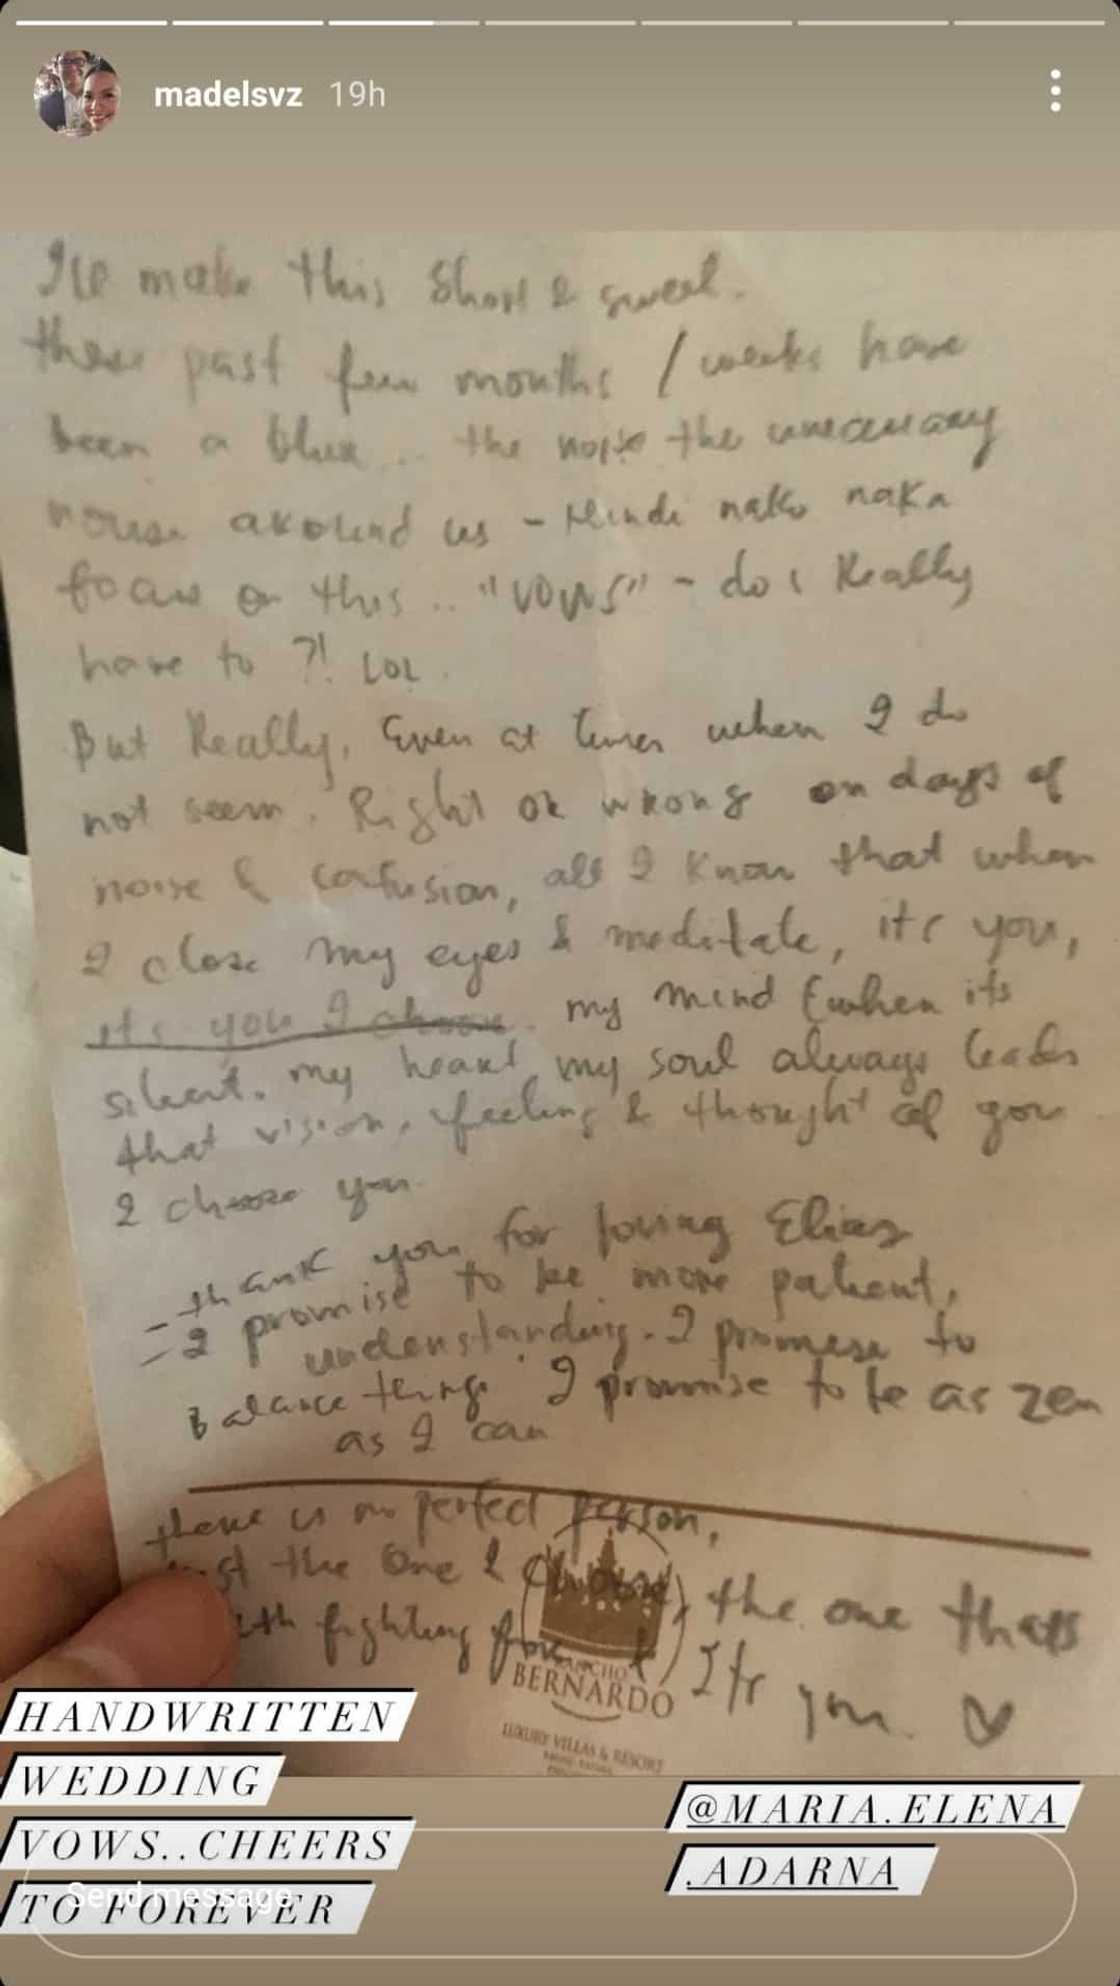 madelsvz 19h
I'll make this short & sweet.
these past few months / weeks have
been a blur... the noise the unecessary
noise around us - Hindi nako naka
focus on this.. "VOWS" - do i Really
have to ?! LOL
But Really, Even at times when I do
not seem. Right or wrong on days of
noise & confusion, all I know that when
I close my eyes & meditate, its you,
its you I choose. my mind (when its
silent. my heart, my soul always leads
that vision, feeling & thought of you
I choose you.
- thank you for loving Elias
- I promise to be more patient,
understanding. I promise to
Balance things. I promise to be as zen
as I can
there is no perfect person,
the one I the one thats
fighting for Its you. ♡
RANCHO
BERNARDO
LUXURY VILLAS & RESORT
HANDWRITTEN
WEDDING
VOWS..CHEERS
TO FOREVER
@MARIA.ELENA
.ADARNA
Send message